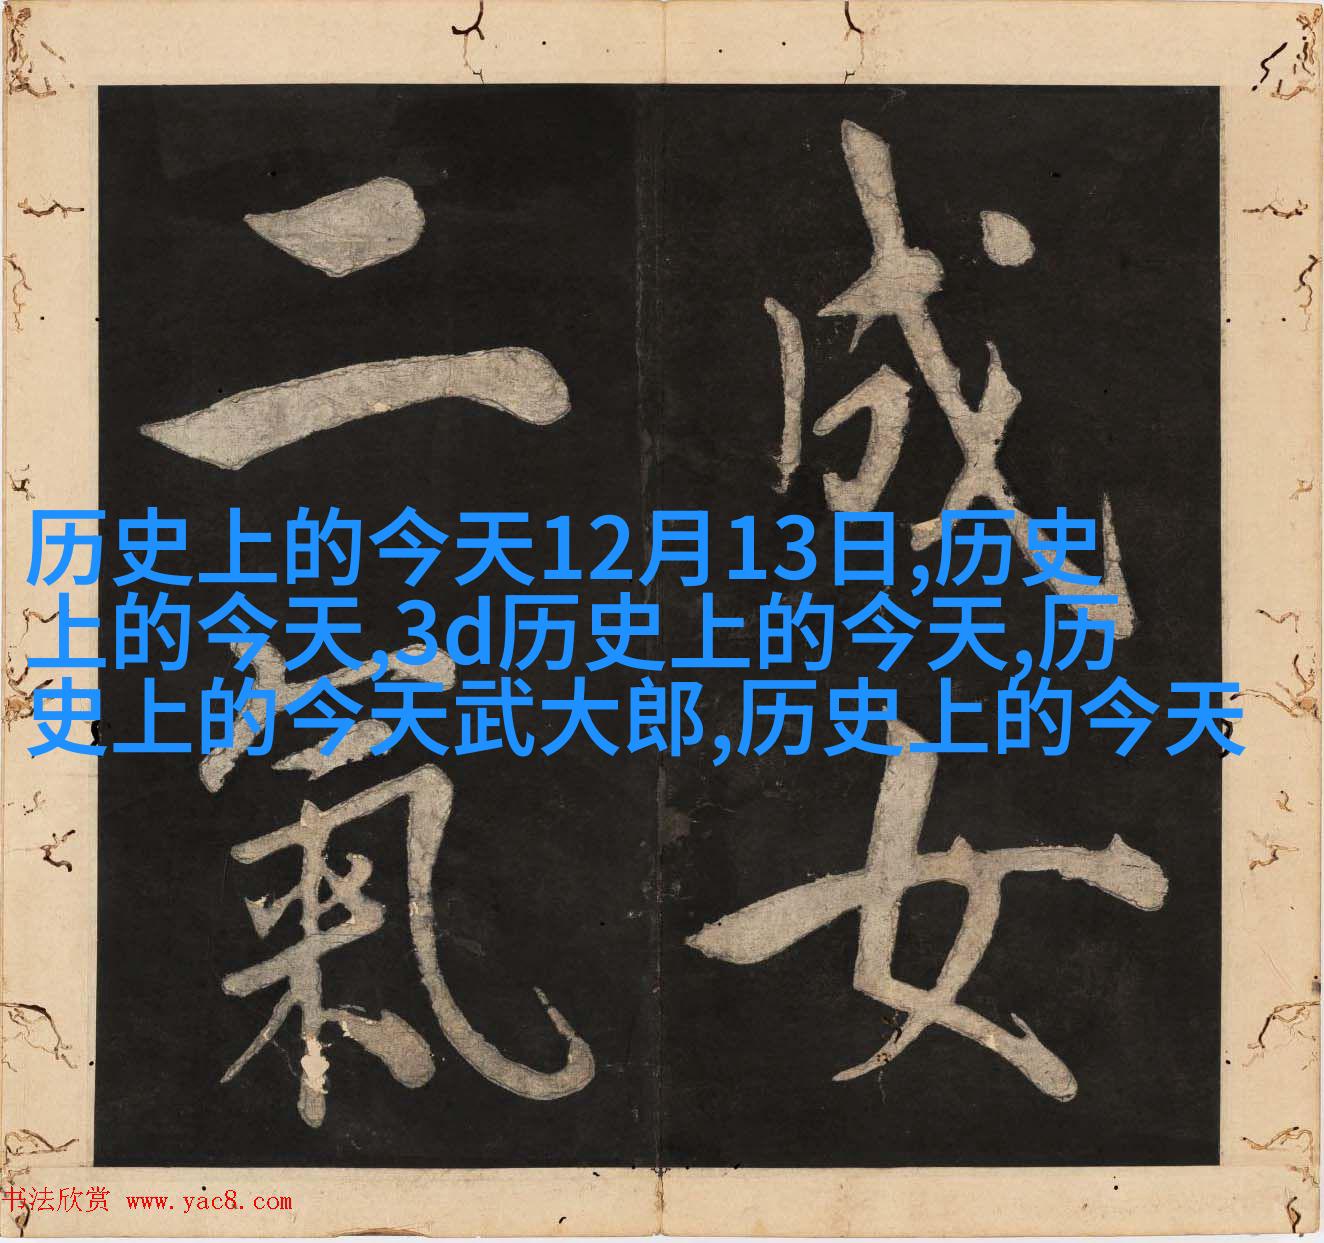 成女
二氣
历史上的今天12月13日,历史
上的今天,3d历史上的今天,历
史上的今天武大郎,历史上的今天
书法欣赏 www.yac8.com